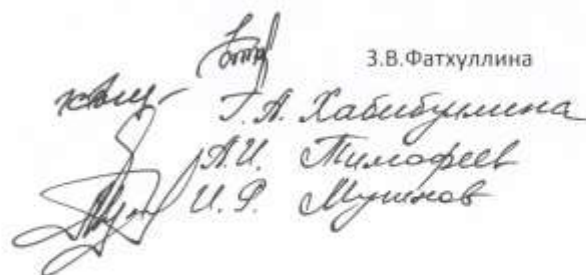 З.В.Фатхуллина
Г. А. Хабибуллина
А.И. Тимофеев
И. Ф.